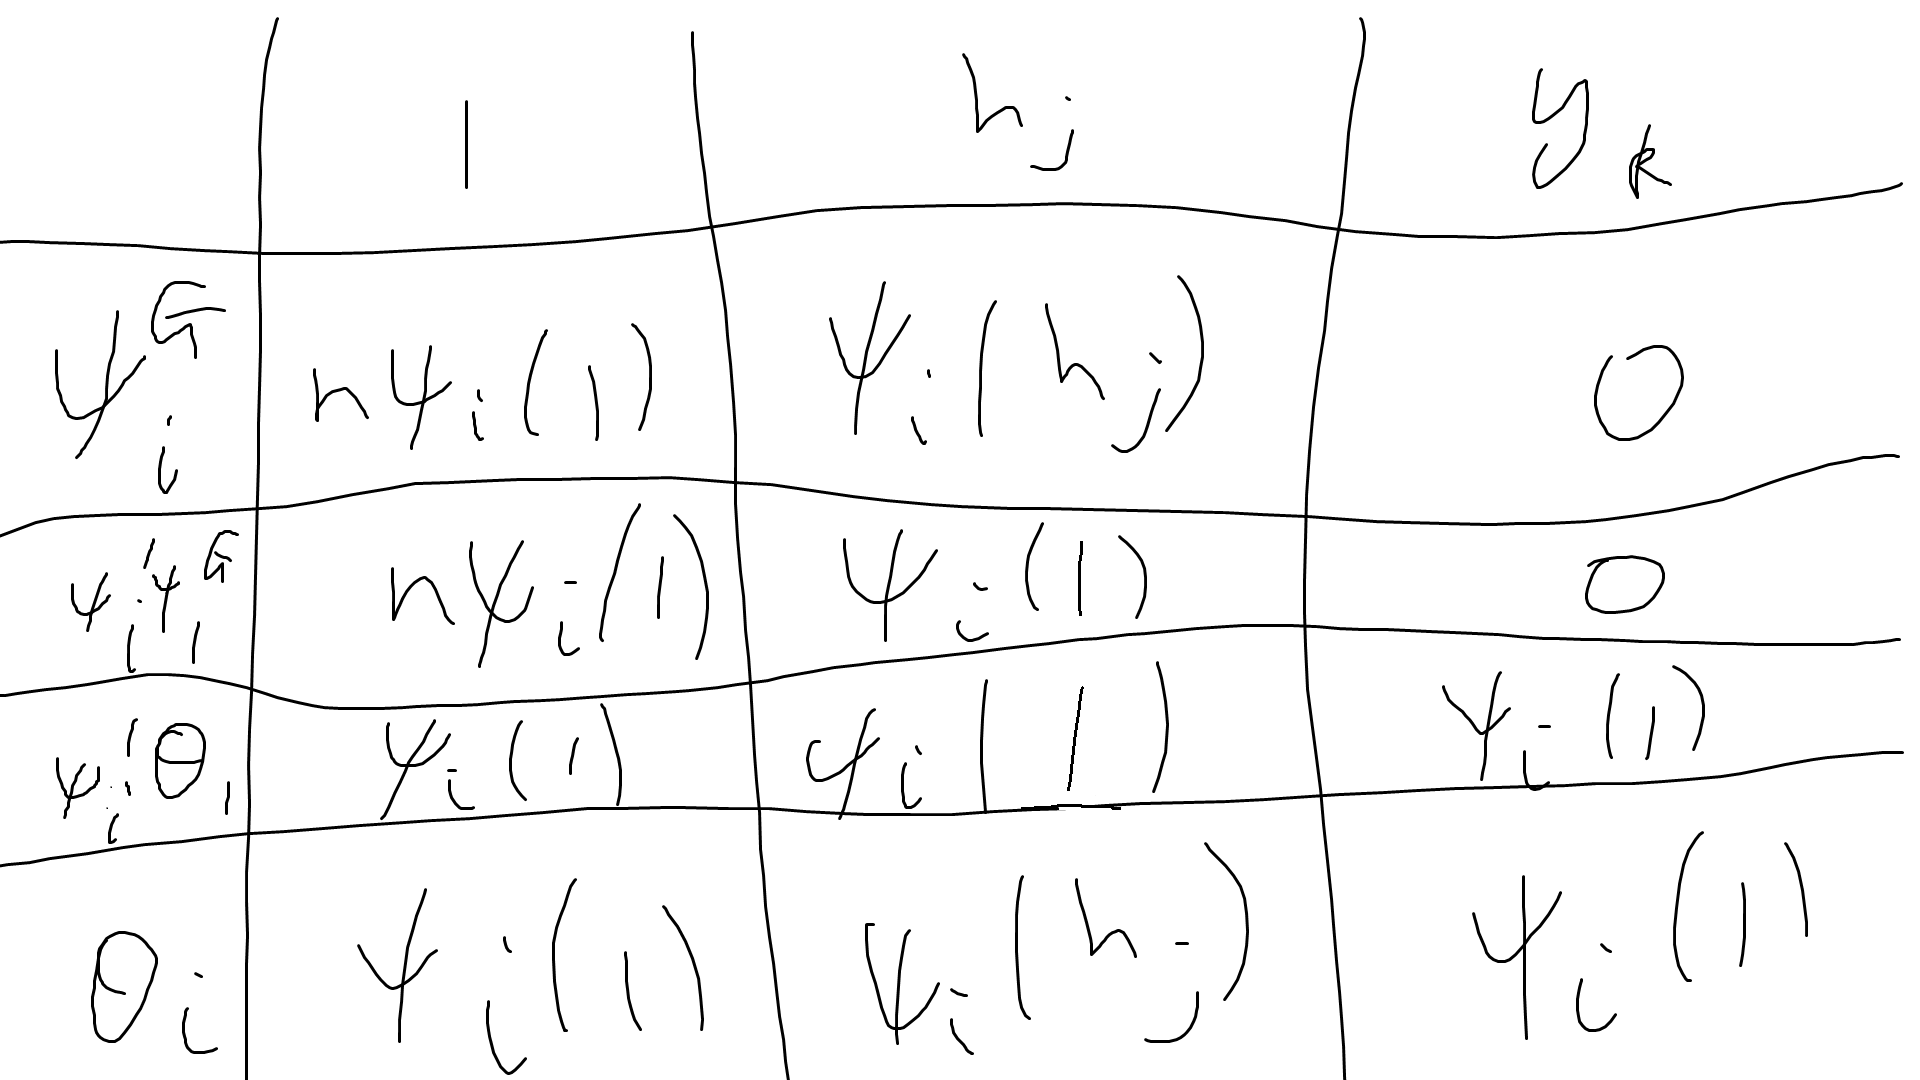 1 h_j y_k
ψ_i^G nψ_i(1) ψ_i(h_j) 0
ψ_i'ψ_1^G nψ_i(1) ψ_i(1) 0
ψ_i'θ_1 ψ_i(1) ψ_i(1) ψ_i(1)
θ_i ψ_i(1) ψ_i(h_j) ψ_i(1)